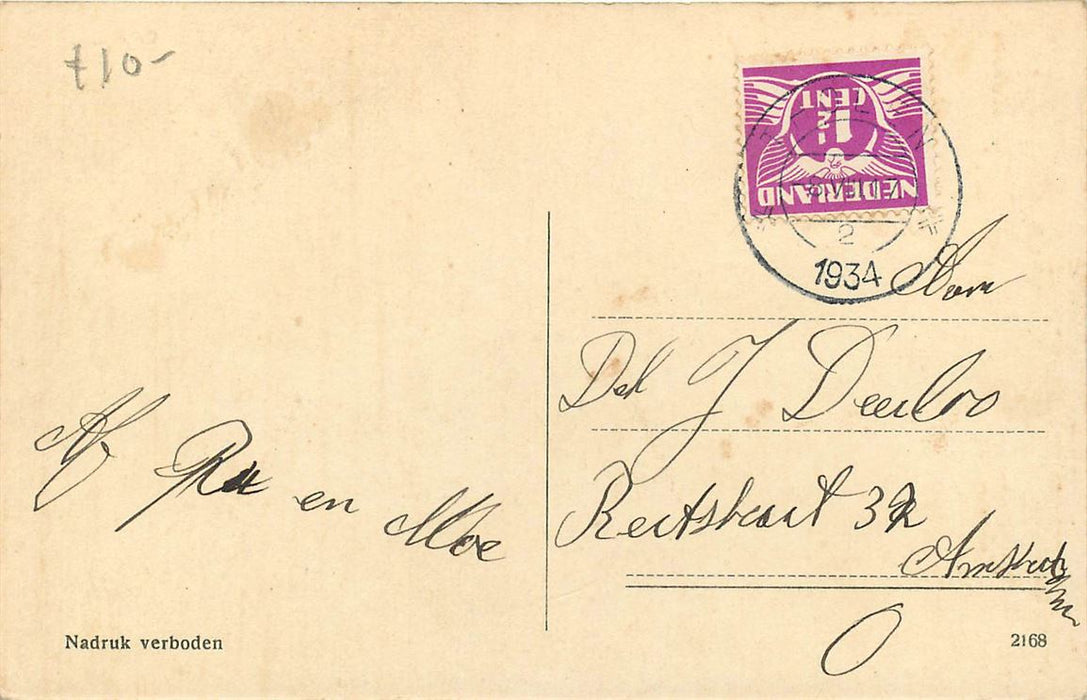 f10-
NEDERLAND
1½
CENT
2
1934
Aan
J Deerloo
straat 32
Amsterdam
O
Af
Pa en Moe
Nadruk verboden
2168